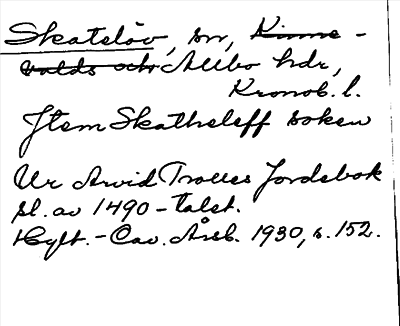 Skatelöv, sn, Kinne-
valds och Allbo hdr,
Kronob. l.
Item Skatheleff soken
Ur Arvid Trolles Jordebok
sl. av 1490-talet.
Hylt.-Cav. Årsb. 1930, s. 152.